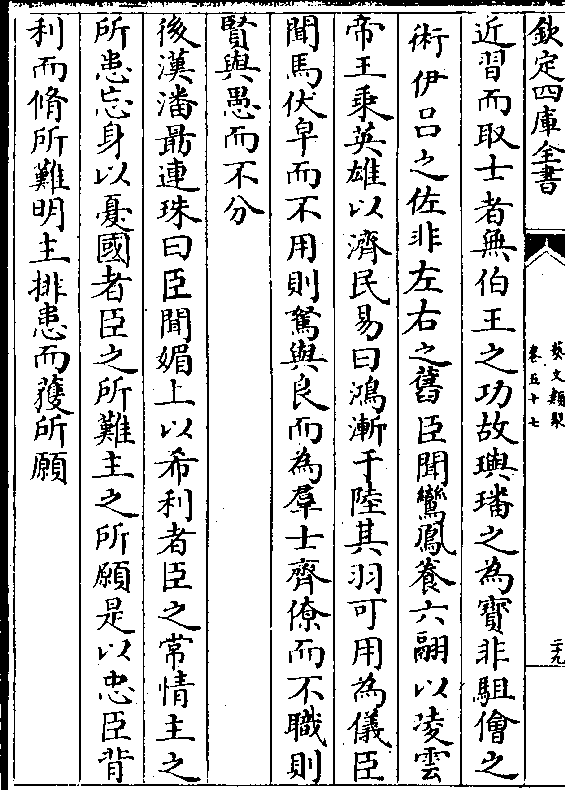 欽定四庫全書
藝文類聚
卷五十七
二十九
近習而取士者無伯王之功故璵璠之為寶非駔儈之
術伊呂之佐非左右之舊臣聞鸞鳳養六翮以凌雲
帝王乘英雄以濟民易曰鴻漸于陸其羽可用為儀臣
聞馬伏皁而不用則駑與良而為羣士齊僚而不職則
賢與愚而不分
後漢潘勗連珠曰臣聞媚上以希利者臣之常情主之
所患忘身以憂國者臣之所難主之所願是以忠臣背
利而脩所難明主排患而獲所願